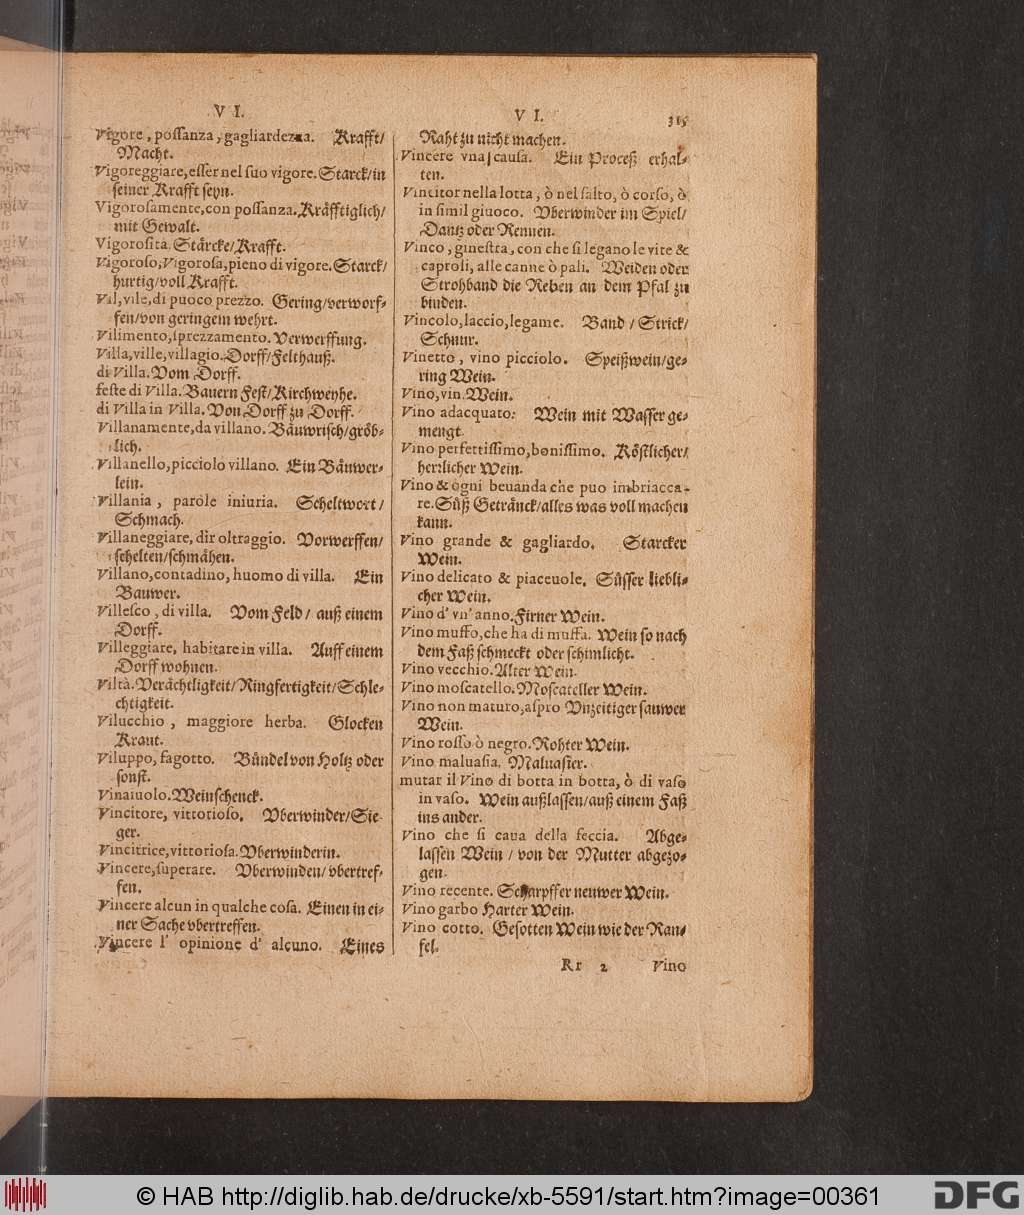 V I.
Vigore, poſſanza, gagliardezza. Krafft/
Macht.
Vigoreggiare, eſſer nel ſuo vigore. Starck/in
ſeiner Krafft ſeyn.
Vigoroſamente, con poſſanza. Kräfftiglich/
mit Gewalt.
Vigoroſità. Stärcke/Krafft.
Vigoroſo, Vigoroſa, pieno di vigore. Starck/
hurtig/voll Krafft.
Vil, vile, di puoco prezzo. Gering/verworf-
fen/von geringem wehrt.
Vilimento, ſprezzamento. Verwerffung.
Villa, ville, villagio. Dorff/Felthauß.
di Villa. Vom Dorff.
feſte di Villa. Bauern Feſt/Kirchweyhe.
di Villa in Villa. Von Dorff zu Dorff.
Villanamente, da villano. Bäuwriſch/gröb-
lich.
Villanello, picciolo villano. Ein Bäuwer-
lein.
Villania, parole iniuria. Scheltwort/
Schmach.
Villaneggiare, dir oltraggio. Vorwerffen/
ſchelten/ſchmähen.
Villano, contadino, huomo di villa. Ein
Bauwer.
Villeſco, di villa. Vom Feld/ auß einem
Dorff.
Villeggiare, habitare in villa. Auff einem
Dorff wohnen.
Viltà. Verächtligkeit/Ringfertigkeit/Schle-
chtigkeit.
Vilucchio, maggiore herba. Glocken
Kraut.
Viluppo, fagotto. Bündel von Holtz oder
ſonſt.
Vinaiuolo. Weinſchenck.
Vincitore, vittorioſo. Vberwinder/Sie-
ger.
Vincitrice, vittorioſa. Vberwinderin.
Vincere, ſuperare. Vberwinden/vbertref-
fen.
Vincere alcun in qualche coſa. Einen in ei-
ner Sache vbertreffen.
Vincere l' opinione d' alcuno. Eines
V I. 315
Raht zu nicht machen.
Vincere vna cauſa. Ein Proceß erhal-
ten.
Vincitor nella lotta, ò nel ſalto, ò corſo, ò
in ſimil giuoco. Vberwinder im Spiel/
Dantz oder Rennen.
Vinco, gineſtra, con che ſi legano le vite &
caproli, alle canne ò pali. Weiden oder
Strohband die Reben an dem Pfal zu
binden.
Vincolo, laccio, legame. Band / Strick/
Schnur.
Vinetto, vino picciolo. Speißwein/ge-
ring Wein.
Vino, vin. Wein.
Vino adacquato. Wein mit Waſſer ge-
mengt.
Vino perfettiſſimo, boniſſimo. Köſtlicher/
herzlicher Wein.
Vino & ogni beuanda che puo imbriacca-
re. Süß Getränck/alles was voll machen
kann.
Vino grande & gagliardo. Starcker
Wein.
Vino delicato & piaceuole. Süſſer liebli-
cher Wein.
Vino d' vn' anno. Firner Wein.
Vino muffo, che ha di muffa. Wein ſo nach
dem Faß ſchmeckt oder ſchimlicht.
Vino vecchio. Alter Wein.
Vino moſcatello. Moſcateller Wein.
Vino non maturo, aſpro Vnzeitiger ſauwer
Wein.
Vino roſſo ò negro. Rohter Wein.
Vino maluaſia. Maluaſier.
mutar il Vino di botta in botta, ò di vaſo
in vaſo. Wein außlaſſen/auß einem Faß
ins ander.
Vino che ſi caua della feccia. Abge-
laſſen Wein / von der Mutter abgezo-
gen.
Vino recente. Scharpffer neuwer Wein.
Vino garbo Harter Wein.
Vino cotto. Geſotten Wein wie der Ran-
fel.
Rr 2 Vino
© HAB http://diglib.hab.de/drucke/xb-5591/start.htm?image=00361
DFG